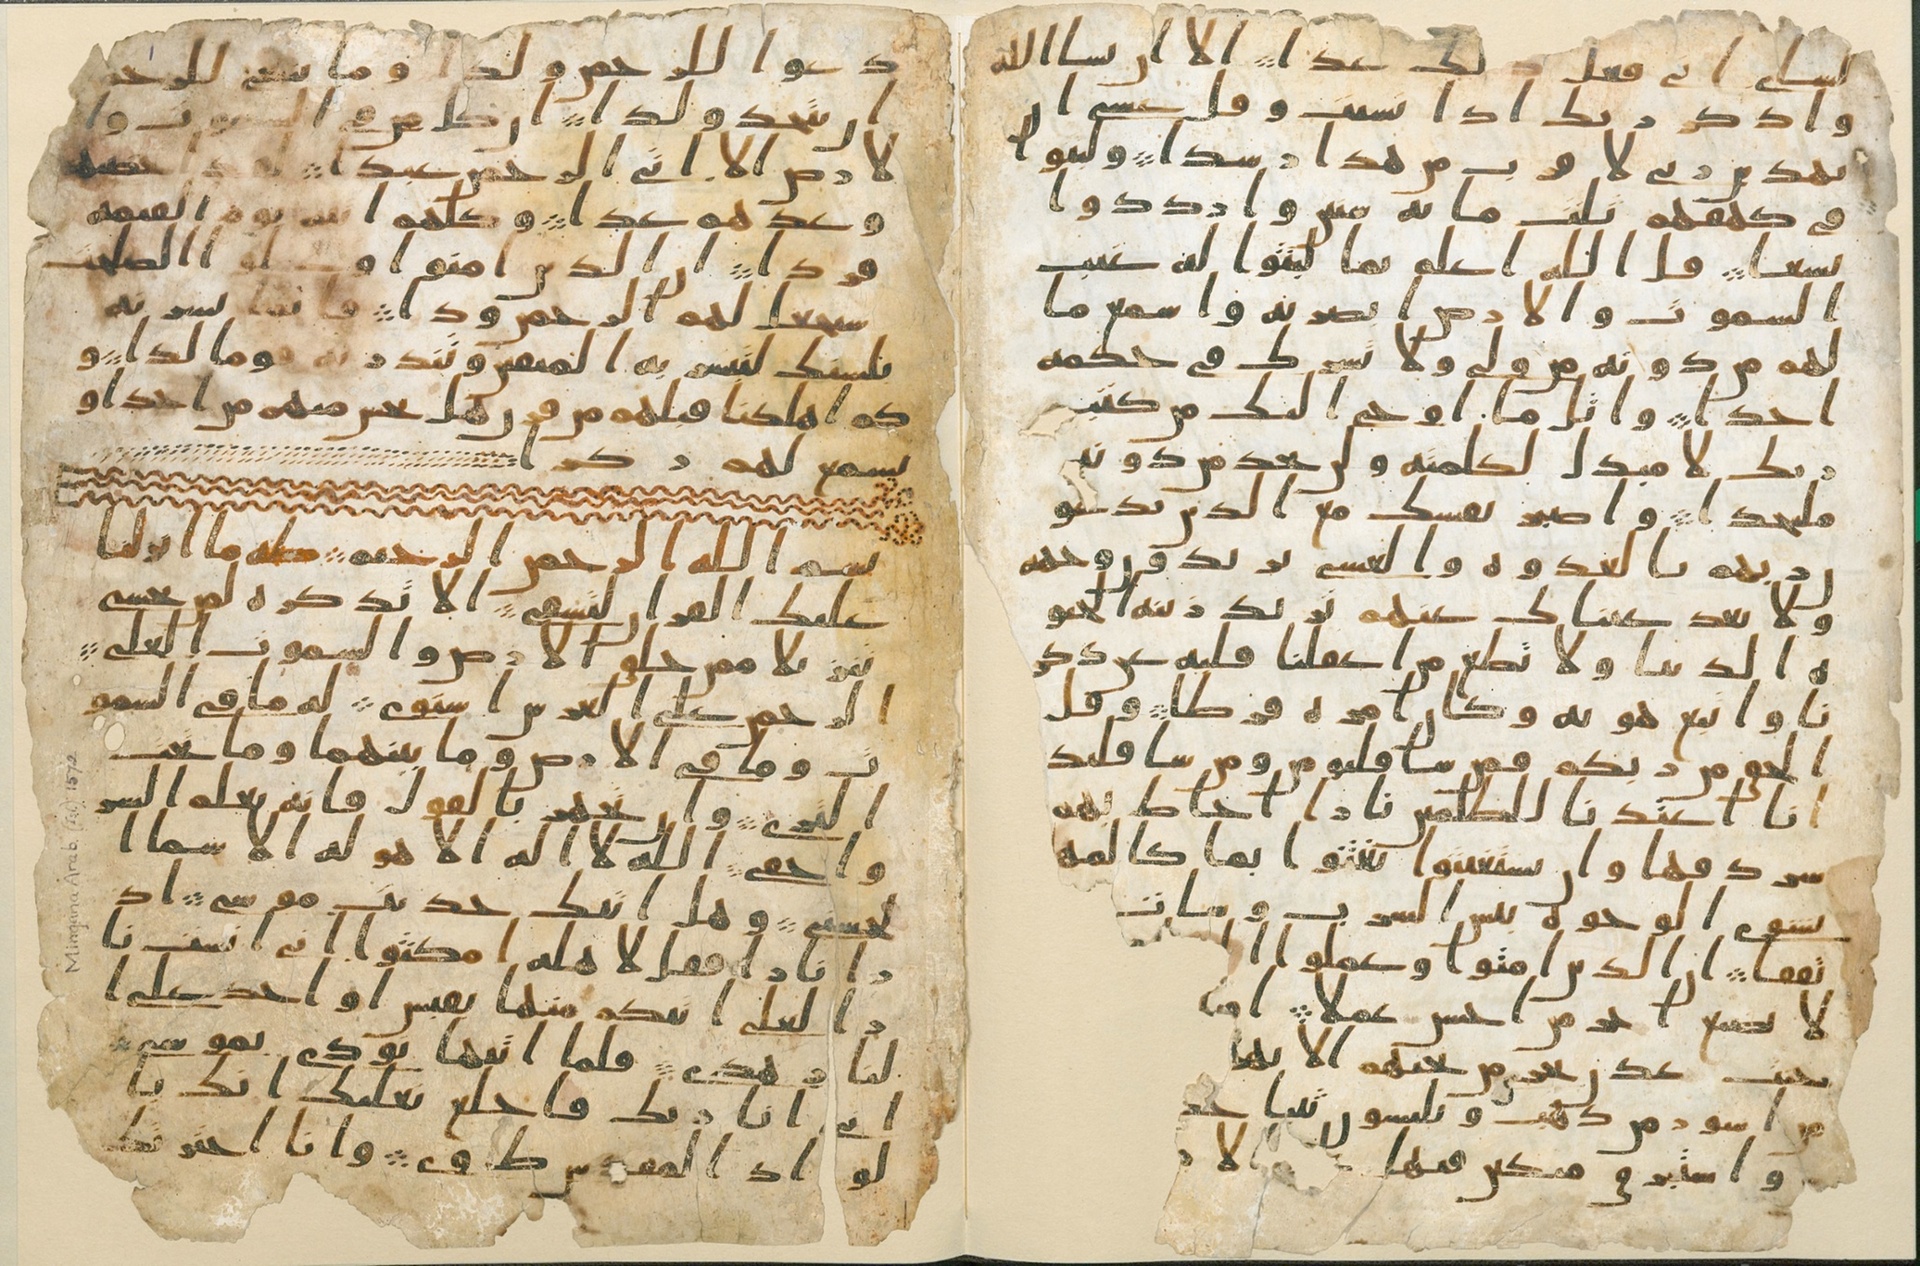 لشاى انى فعل ذلك غدا الا ان يشا الله
واذكر ربك اذا نسيت وقل عسى ان
يهدين ربى لاقرب من هذا رشدا ولبثوا
فى كهفهم ثلث مايه سنين وازددوا
تسعا قل الله اعلم بما لبثوا له غيب
السموت والارض ابصر به واسمع ما
لهم من دونه من ولى ولا يشرك فى حكمه
احدا واتل ما اوحى اليك من كتب
ربك لا مبدل لكلمته ولن تجد من دونه
ملتحدا واصبر نفسك مع الذين يدعو
ن ربهم بالغدوه والعشى يريدون وجهه
ولا تعد عيناك عنهم تريد زينه الحيو
ه الدنيا ولا تطع من اغفلنا قلبه عن ذكر
نا واتبع هويه وكان امره فرطا وقل
الحق من ربكم فمن شا فليومن ومن شا فليكفر
انا اعتدنا للظلمين نارا احاط بهم
سردقها وان يستغيثوا يغثوا بما كالمهل
يشوى الوجوه بيس الشرب وسات
تفقا ان الذين امنوا وعملوا ا
لا نضيع اجر من احسن عملا او
جنت عدن تجرى من تحتهم الانها
من اسور من ذهب ويلبسون ثيبا خضر
واستبرق متكين فيها الار
دعوا للرحمن ولدا وما ينبغى للرحمن
ان يتخذ ولدا ان كل من فى السموت وا
لارض الا اتى الرحمن عبدا لقد احصهم
وعدهم عدا وكلهم اتيه يوم القيمه
فردا ان الذين امنوا وعملوا الصلحت
سيجعل لهم الرحمن ودا فانما يسرنه
بلسنك لتبشر به المتقين وتنذر به قوما لدا و
كم اهلكنا قبلهم من قرن هل تحس منهم من احد او
تسمع لهم ركزا
بسم الله الرحمن الرحيم طه ما انزلنا
عليك القران لتشقى الا تذكره لمن يخشى
تنزيلا ممن خلق الارض والسموت العلى
الرحمن على العرش استوى له ما فى السمو
ت وما فى الارض وما بينهما وما تحت
الثرى وان تجهر بالقول فانه يعلم السر
واخفى الله لا اله الا هو له الاسما ا
لحسنى وهل اتيك حديث موسى اذ
را نارا فقال لاهله امكثوا انى انست نا
را لعلى اتيكم منها بقبس او اجد على ا
لنار هدى فلما اتيها نودى يموسى
انى انا ربك فاخلع نعليك انك با
لواد المقدس طوى وانا اخترتك
Mingana Arab. (Isl.) 1572